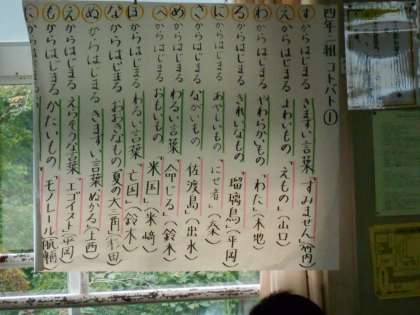 四年二組 コトバト①
すからはじまる きまずい言葉 「すみません」(竹内)
えからはじまる よわいもの 「えもの」(山口)
わからはじまる やわらかいもの 「わた」(木地)
るからはじまる きれいなもの 「瑠璃鳥」(平岡)
にからはじまる あやしいもの 「にせ者」(秦)
さからはじまる ながいもの 「佐渡島」(出水)
めからはじまる わるい言葉 「命じる」(鈴木)
べからはじまる わるいもの 「米国」(米崎)
ほからはじまる わるい言葉 「亡国」(鈴木)
なからはじまる おおきなもの 「夏の大三角」
ぬからはじまる きまずい言葉 「ぬかる」(上西)
えからはじまる えらそうな言葉 「エゴイスト」(平岡)
もからはじまる かたいもの 「モノレール」